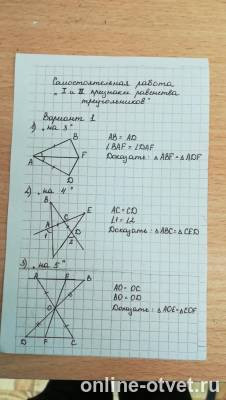 Самостоятельная работа
"I и II признаки равенства
треугольников"
Вариант 1
1) "на 3"
AB = AD
∠BAF = ∠DAF
Доказать: △ABF = △ADF
A
B
F
D
2) "на 4"
AC = CD
∠1 = ∠2
Доказать: △ABC = △CED
B
E
A
C
D
1
2
3) "на 5"
AO = OC
BO = OD
Доказать: △AOE = △COF
A
B
O
D
F
C
online-otvet.ru